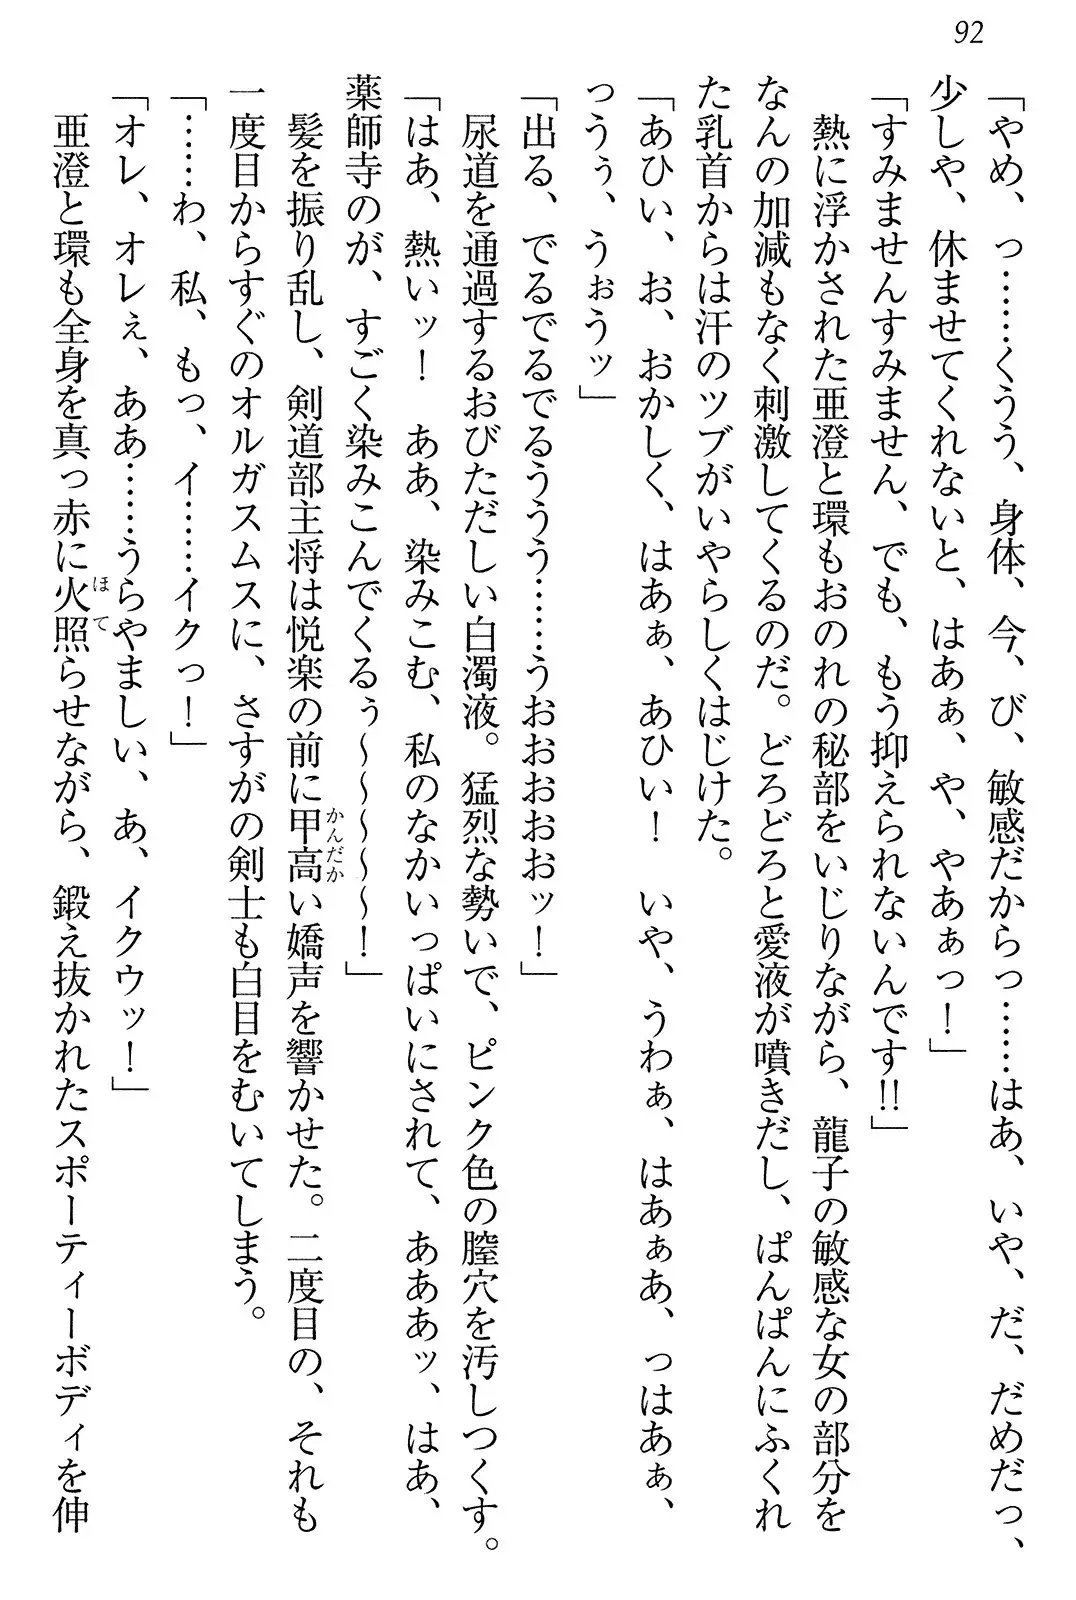 92
「やめ、っ……くうう、身体、今、び、敏感だからっ……はあ、いや、だ、だめだっ、
少しや、休ませてくれないと、はあぁ、や、やあぁっ！」
「すみませんすみません、でも、もう抑えられないんです!!」
熱に浮かされた亜澄と環もおのれの秘部をいじりながら、龍子の敏感な女の部分を
なんの加減もなく刺激してくるのだ。どろどろと愛液が噴きだし、ぱんぱんにふくれ
た乳首からは汗のツブがいやらしくはじけた。
「あひい、お、おかしく、はあぁ、あひい！　いや、うわぁ、はあぁあ、っはあぁ、
っうぅ、うぉうッ」
「出る、でるでるでるううう……うおおおおおッ！」
尿道を通過するおびただしい白濁液。猛烈な勢いで、ピンク色の膣穴を汚しつくす。
「はあ、熱いッ！　ああ、染みこむ、私のなかいっぱいにされて、あああッ、はあ、
薬師寺のが、すごく染みこんでくるぅ～～～～～！」
髪を振り乱し、剣道部主将は悦楽の前に甲高（かんだか）い嬌声を響かせた。二度目の、それも
一度目からすぐのオルガスムスに、さすがの剣士も白目をむいてしまう。
「……わ、私、もっ、イ……イクっ！」
「オレ、オレぇ、ああ……うらやましい、あ、イクウッ！」
亜澄と環も全身を真っ赤に火照（ほて）らせながら、鍛え抜かれたスポーティーボディを伸